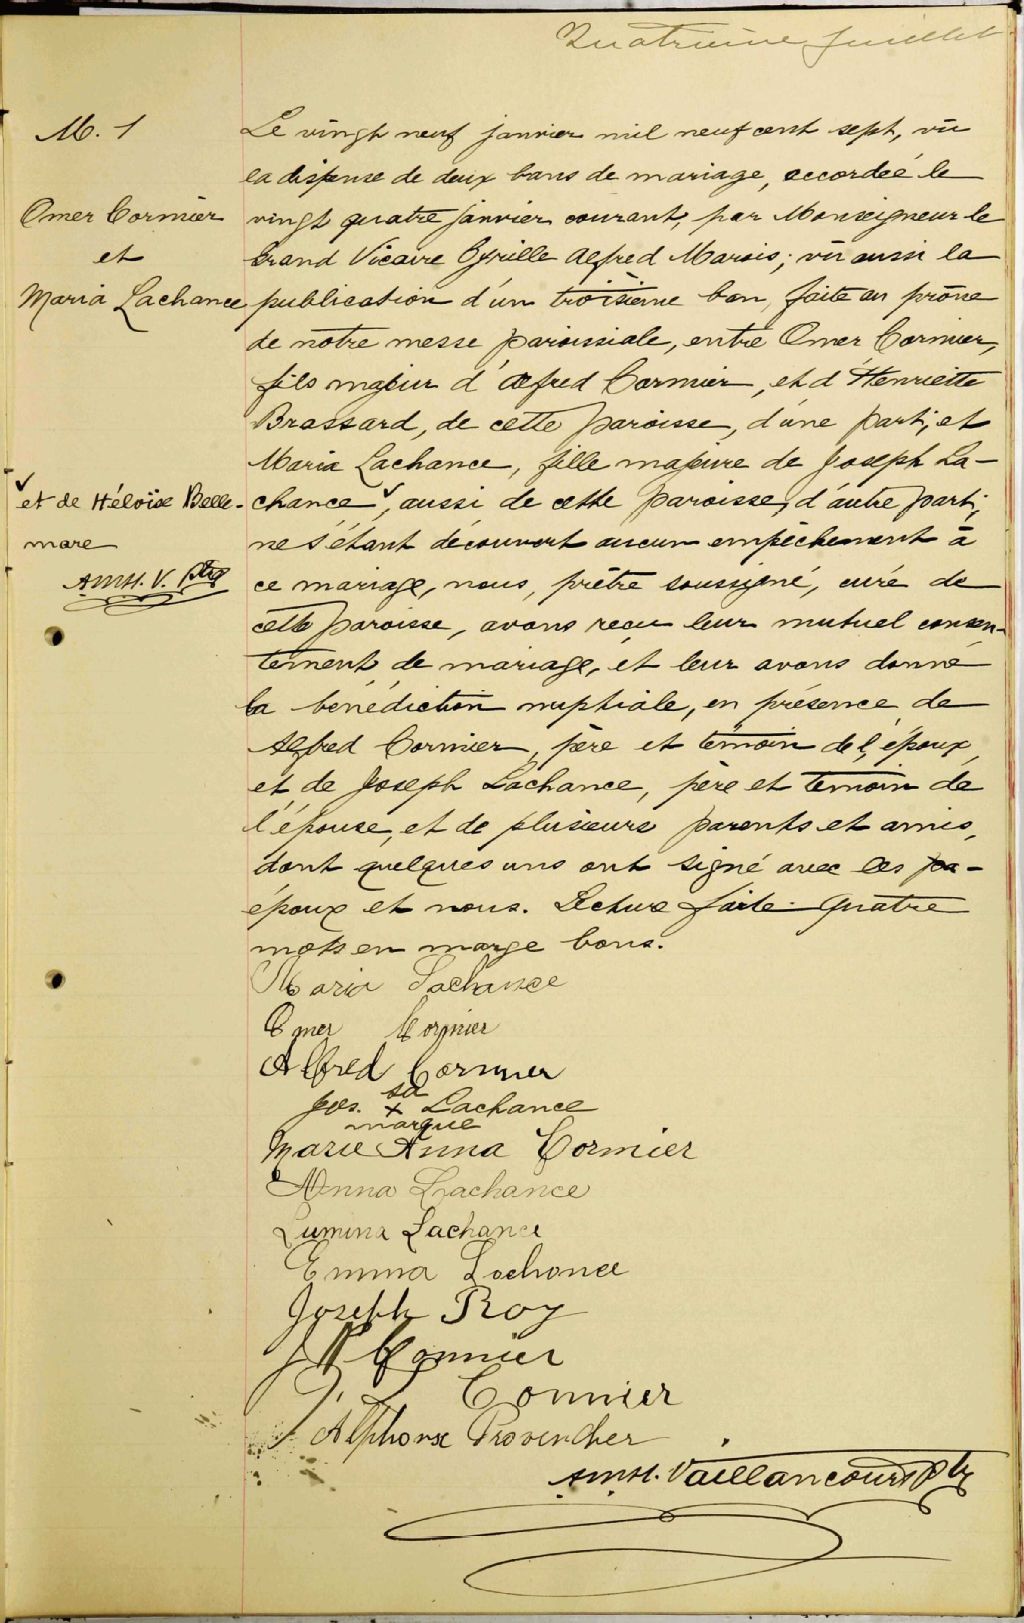 Quatrième feuillet
M. 1
Omer Cormier
et
Maria Lachance
Le vingt neuf janvier mil neuf cent sept, vu
la dispense de deux bans de mariage, accordée le
vingt quatre janvier courant, par Monseigneur le
Grand Vicaire Cyrille Alfred Marois; vu aussi la
publication d'un troisième ban, faite au prône
de notre messe paroissiale, entre Omer Cormier,
fils majeur d'Alfred Cormier, et d'Henriette
Brassard, de cette paroisse, d'une part, et
Maria Lachance, fille majeure de Joseph La-
chance ✓, aussi de cette paroisse, d'autre part;
✓ et de Héloïse Belle-
mare
A.M.H. V. Ptre
ne s'étant découvert aucun empêchement à
ce mariage, nous, prêtre soussigné, curé de
cette paroisse, avons reçu leur mutuel consen-
tement de mariage, et leur avons donné
la bénédiction nuptiale, en présence de
Alfred Cormier, père et témoin de l'époux,
et de Joseph Lachance, père et temoin de
l'épouse, et de plusieurs parents et amis,
dont quelques uns ont signé avec les pa-
époux et nous. Lecture faite. Quatre
mots en marge bons.
Maria Lachance
Omer Cormier
Alfred Cormier
sa
Jos. + Lachance
marque
Marie Anna Cormier
Anna Lachance
Lumina Lachance
Emma Lachance
Joseph Roy
J Cormier
J. L Cormier
Alphonse Provencher
A.M.H. Vaillancourt Ptre